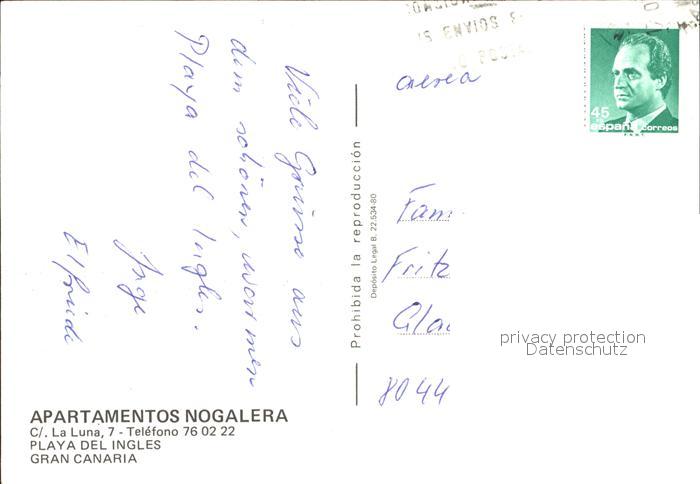 Viele Grüsse aus
dem schönen, warmen
Playa del Ingles.
Inge
Elfriede
Prohibida la reproducción
Depósito Legal B. 22.534-80
aerea
45
españa correos
Fam.
Fritz
Gla
8044
privacy protection
Datenschutz
APARTAMENTOS NOGALERA
C/. La Luna, 7 - Teléfono 76 02 22
PLAYA DEL INGLES
GRAN CANARIA